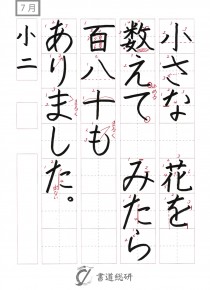 7月
小さな 花を
数えて みたら
百八十も
ありました。
小二
書道総研